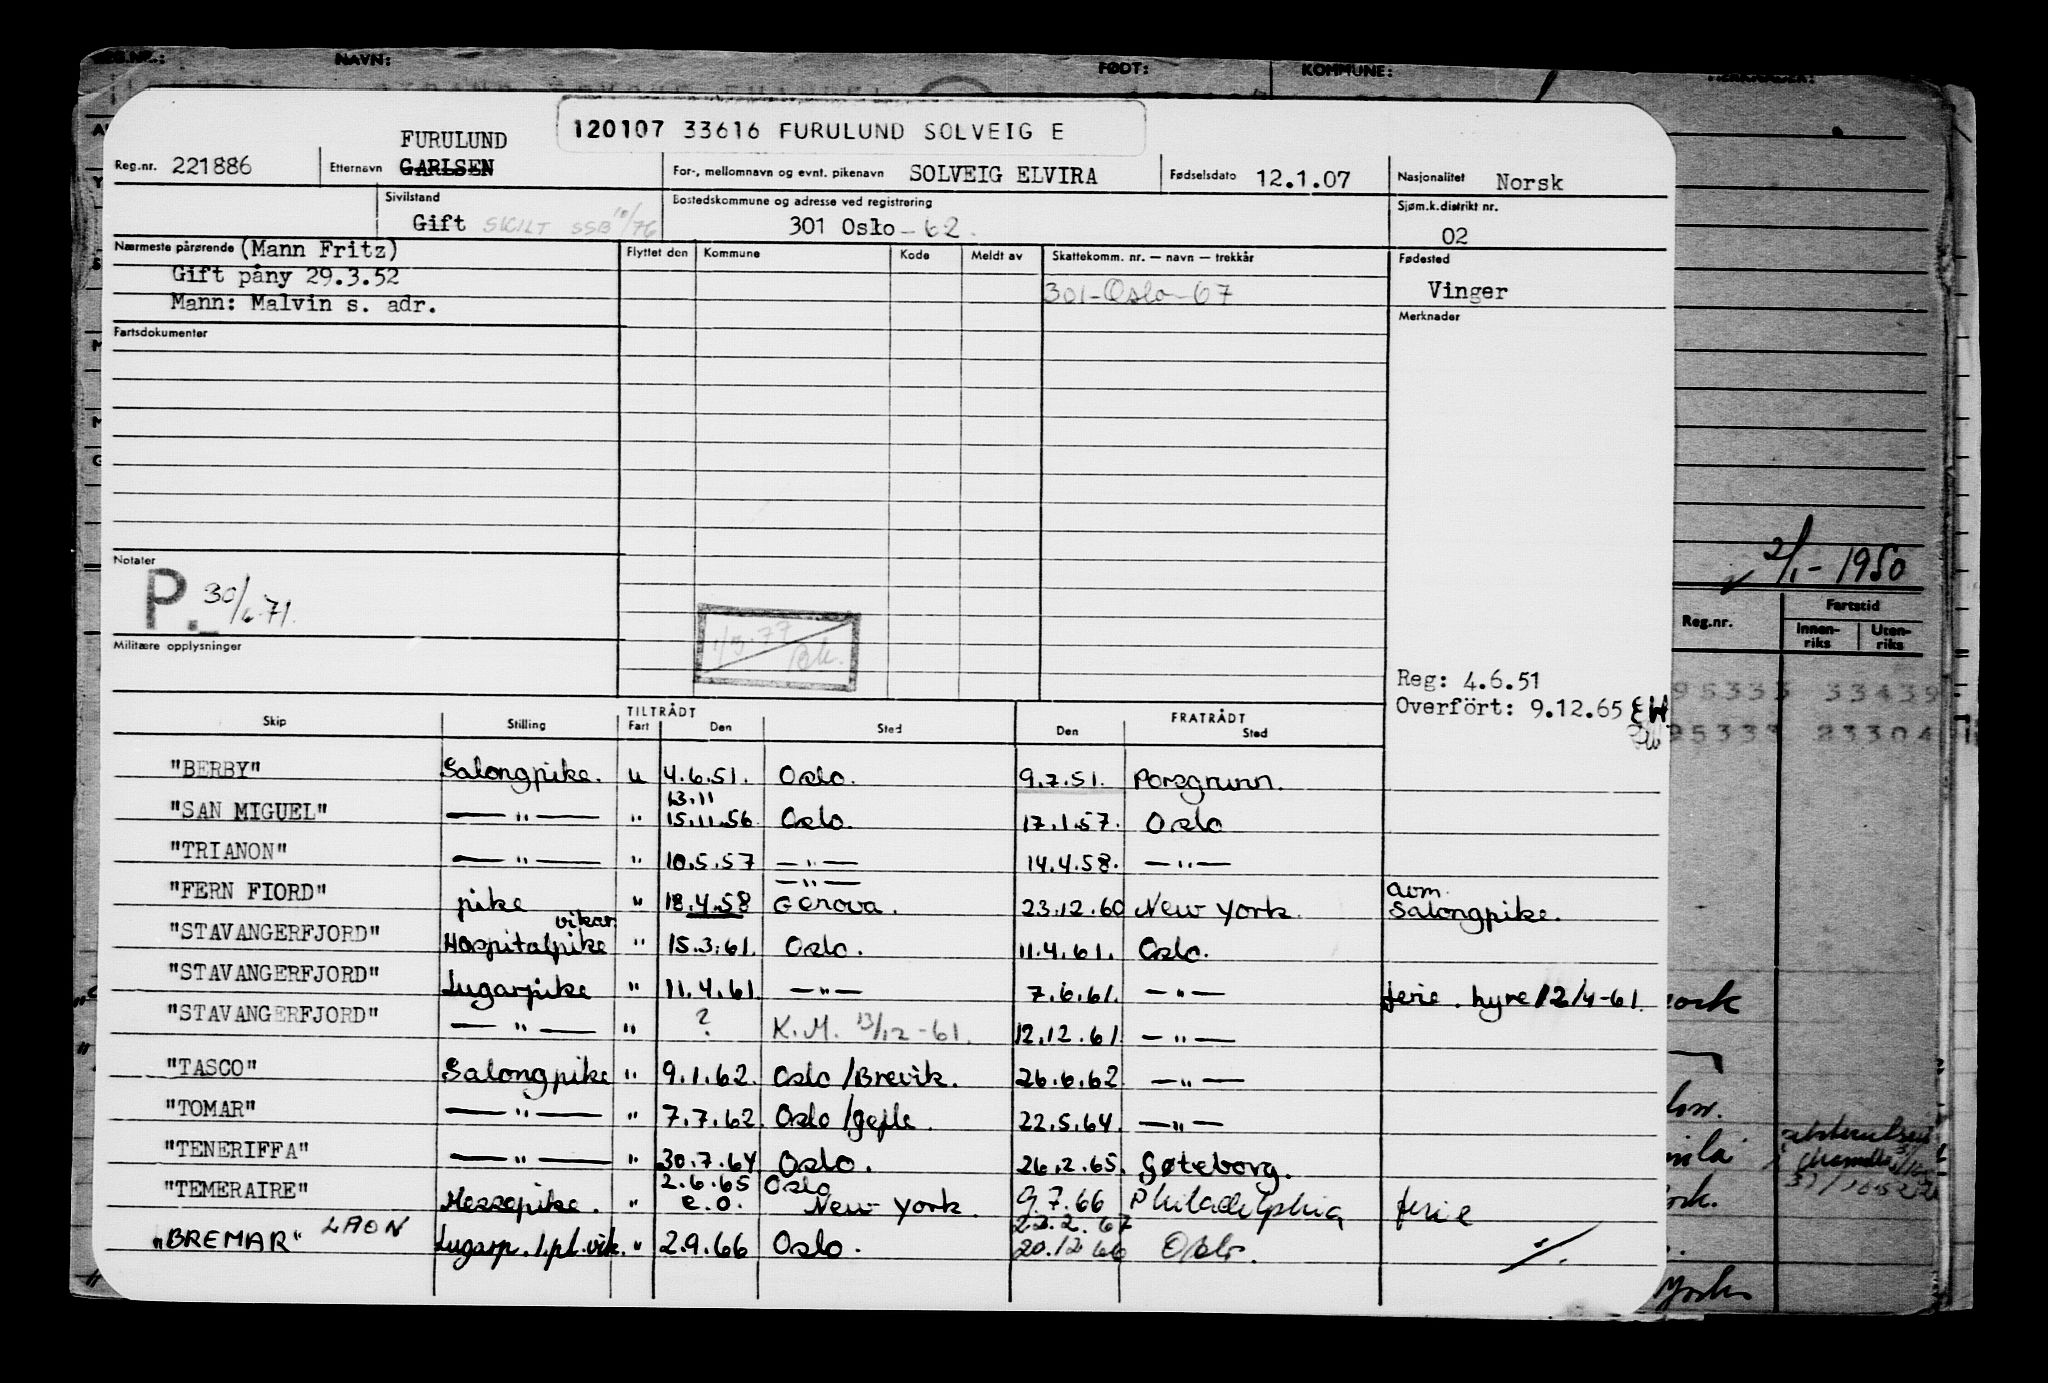 NAVN: FØDT: KOMMUNE:
120107 33616 FURULUND SOLVEIG E
FURULUND
Reg.nr. 221886 Etternavn GARLSEN For-, mellomnavn og evnt. pikenavn SOLVEIG ELVIRA Fødselsdato 12.1.07 Nasjonalitet Norsk
Sivilstand Bostedskommune og adresse ved registrering Sjøm.k.distrikt nr.
Gift SKILT SSB 10/76 301 Oslo - 62. 02
Nærmeste pårørende (Mann Fritz) Flyttet den Kommune Kode Meldt av Skattekomm. nr. — navn — trekkår Fødested
Gift påny 29.3.52 301-Oslo-67 Vinger
Mann: Malvin s. adr. Merknader
Fartsdokumenter
Notater
P. 30/6-71.
2/1-1950
1/3-77 Bk.
Militære opplysninger
Reg.nr. Fartstid
Innen-riks Uten-riks
Reg: 4.6.51
Overfört: 9.12.65 EW
95333 33439
95333 23304
Skip Stilling TILTRÅDT Fart Den Sted FRATRÅDT Den Sted
"BERBY" Salongpike. u 4.6.51. Oslo. 9.7.51. Porsgrunn.
13.11
"SAN MIGUEL" — " — " 15.11.56 Oslo. 17.1.57. Oslo
"TRIANON" — " — " 10.5.57 — " — 14.4.58. — " —
— " — avm.
"FERN FIORD" pike " 18.4.58 Genova. 23.12.60 New York. Salongpike.
vikar.
"STAVANGERFJORD" Hospitalpike " 15.3.61. Oslo. 11.4.61. Oslo.
"STAVANGERFJORD" Lugarpike " 11.4.61. — " — 7.6.61. — " — ferie. hyre 12/4-61.
"STAVANGERFJORD" — " — " ? K.M. 13/12-61. 12.12.61. — " —
"TASCO" Salongpike " 9.1.62. Oslo/Brevik. 26.6.62 — " —
"TOMAR" — " — " 7.7.62. Oslo/Gefle. 22.5.64. — " —
"TENERIFFA" — " — " 30.7.64. Oslo. 26.2.65. Gøteborg.
2.6.65 Oslo
"TEMERAIRE" Messepike. " e.o. New York. 9.7.66 Philadelphia ferie
23.2.67
"BREMAR" LAON Lugarp.1.pl.vik. " 2.9.66 Oslo. 20.12.66 Oslo. ./.